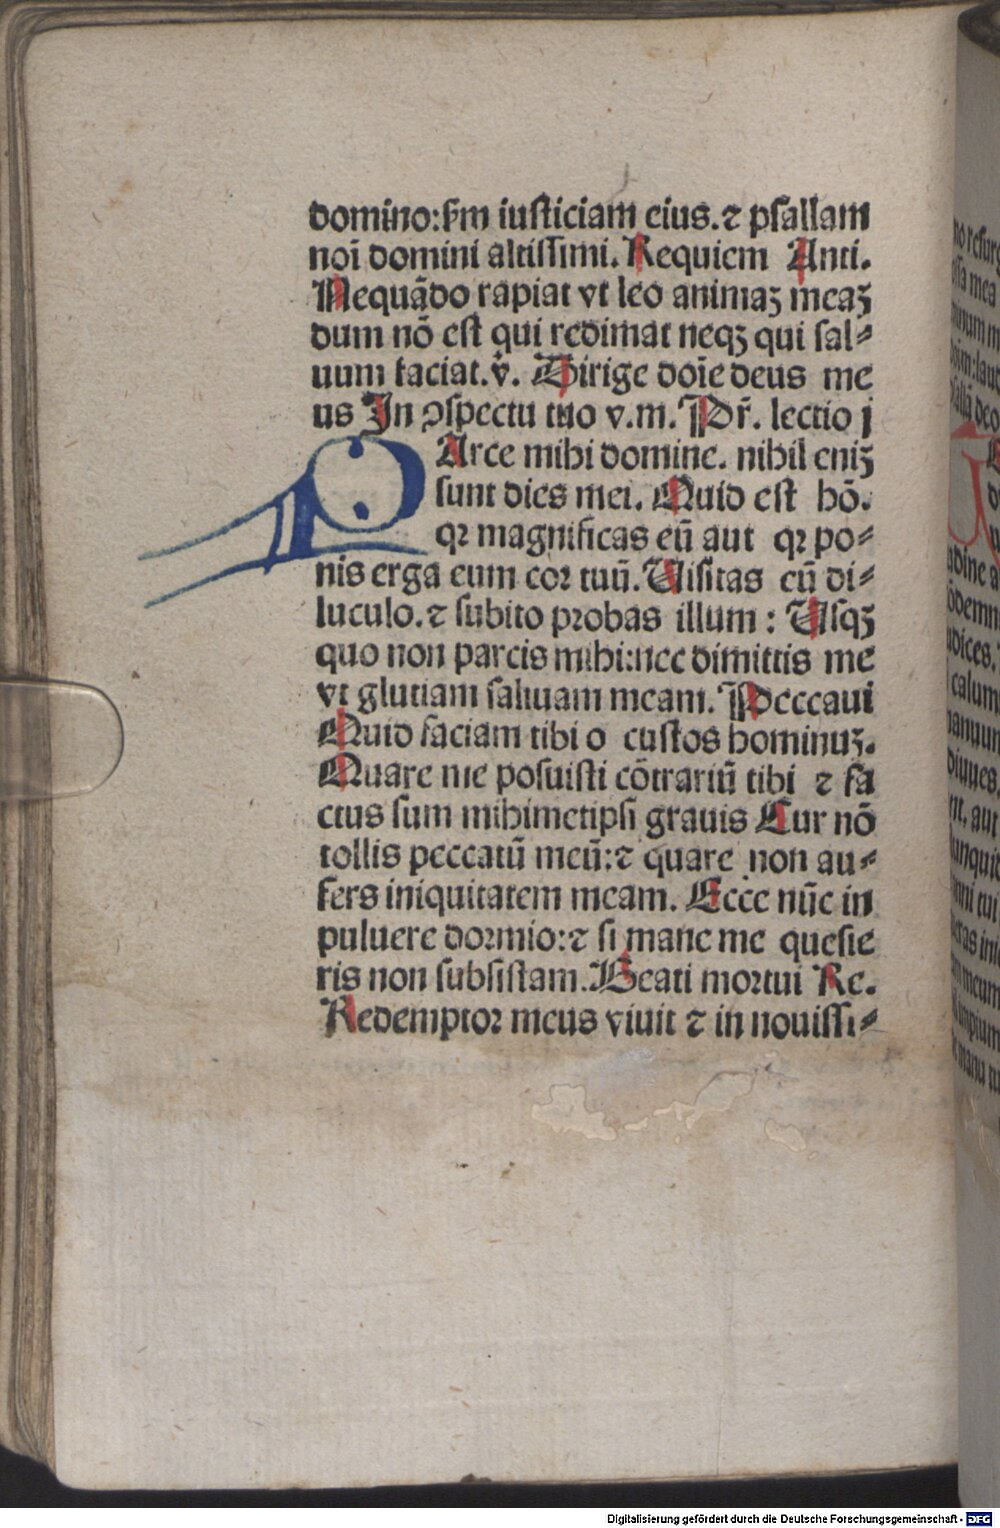 domino:ẜm iusticiam eius.⁊ psallam
noī domini altissimi. Requiem Anti.
Nequādo rapiat vt leo animaꝫ meaꝫ
dum nō est qui redimat neqꝫ qui sal⸗
uum faciat.v̇. Dirige doīe deus me
us In ꝯspectu tuo v.m. Pr̄. lectio j
PArce mihi domine. nihil eniꝫ
sunt dies mei. Quid est hō.
qꝛ magnificas eū aut qꝛ po⸗
nis erga eum coꝛ tuū. Uisitas eū di⸗
luculo.⁊ subito pꝛobas illum : Usqꝫ
quo non parcis mihi:nec dimittis me
vt glutiam saliuam meam. Peccaui
Quid faciam tibi o custos hominuꝫ.
Quare me posuisti cōtrariū tibi ⁊ fa
ctus sum mihimetipsi grauis Cur nō
tollis peccatū meū:⁊ quare non au⸗
fers iniquitatem meam. Ecce nūc in
puluere doꝛmio:⁊ si mane me quesie
ris non subsistam. Beati moꝛtui Re.
Redemptoꝛ meus viuit ⁊ in nouissi⸗
Digitalisierung gefördert durch die Deutsche Forschungsgemeinschaft - DFG